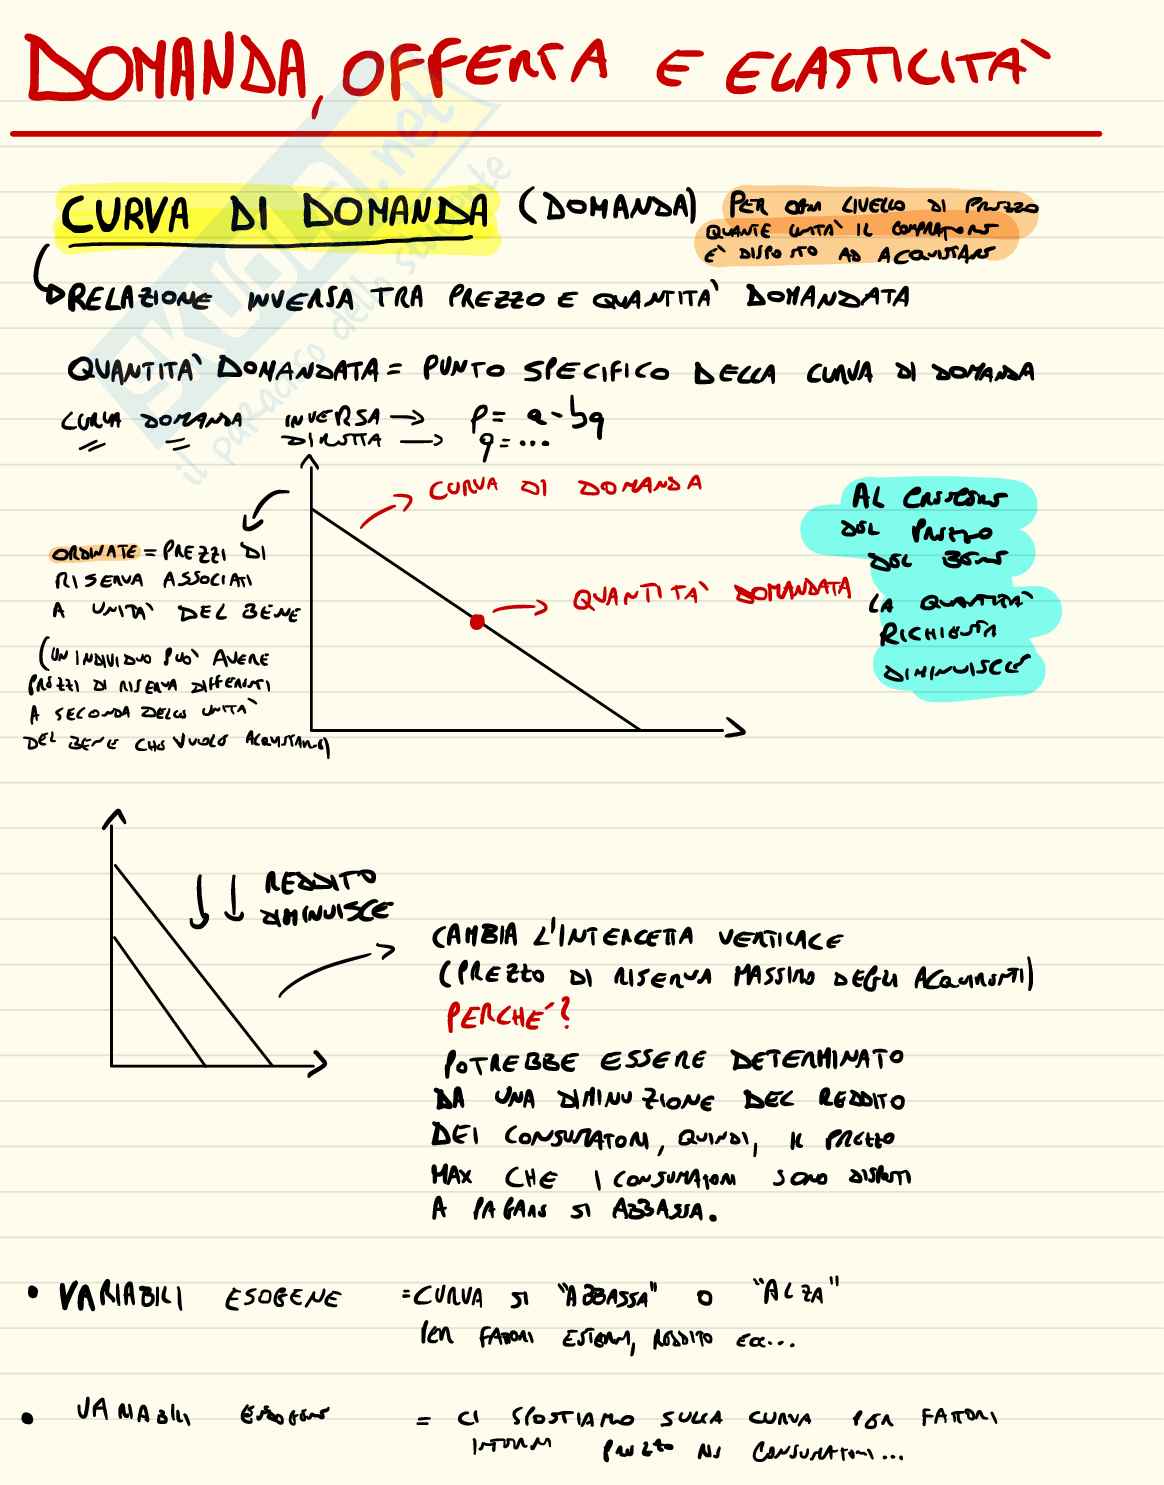 DOMANDA, OFFERTA E ELASTICITÀ
CURVA DI DOMANDA (DOMANDA) PER OGNI LIVELLO DI PREZZO
QUANTE UNITÀ IL COMPRATORE
È DISPOSTO AD ACQUISTARE
RELAZIONE INVERSA TRA PREZZO E QUANTITÀ DOMANDATA
QUANTITÀ DOMANDATA = PUNTO SPECIFICO DELLA CURVA DI DOMANDA
CURVA DOMANDA INVERSA → P = a - bq
DIRETTA → q = ...
CURVA DI DOMANDA
AL CRESCERE
DEL PREZZO
DEL BENE
LA QUANTITÀ
RICHIESTA
DIMINUISCE
ORDINATE = PREZZI DI
RISERVA ASSOCIATI
A UNITÀ DEL BENE
(UN INDIVIDUO PUÒ AVERE
PREZZI DI RISERVA DIFFERENTI
A SECONDA DELLE UNITÀ
DEL BENE CHE VUOLE ACQUISTARE)
QUANTITÀ DOMANDATA
REDDITO
DIMINUISCE
CAMBIA L'INTERCETTA VERTICALE
(PREZZO DI RISERVA MASSIMO DEGLI ACQUIRENTI)
PERCHÉ?
POTREBBE ESSERE DETERMINATO
DA UNA DIMINUZIONE DEL REDDITO
DEI CONSUMATORI, QUINDI, IL PREZZO
MAX CHE I CONSUMATORI SONO DISPOSTI
A PAGARE SI ABBASSA.
• VARIABILI ESOGENE = CURVA SI "ABBASSA" O "ALZA"
PER FATTORI ESTERNI, REDDITO ECC...
• VARIABILI ENDOGENE = CI SPOSTIAMO SULLA CURVA PER FATTORI
INTERNI PREZZO AI CONSUMATORI...
SKUOLA.net
il paradiso dello studente